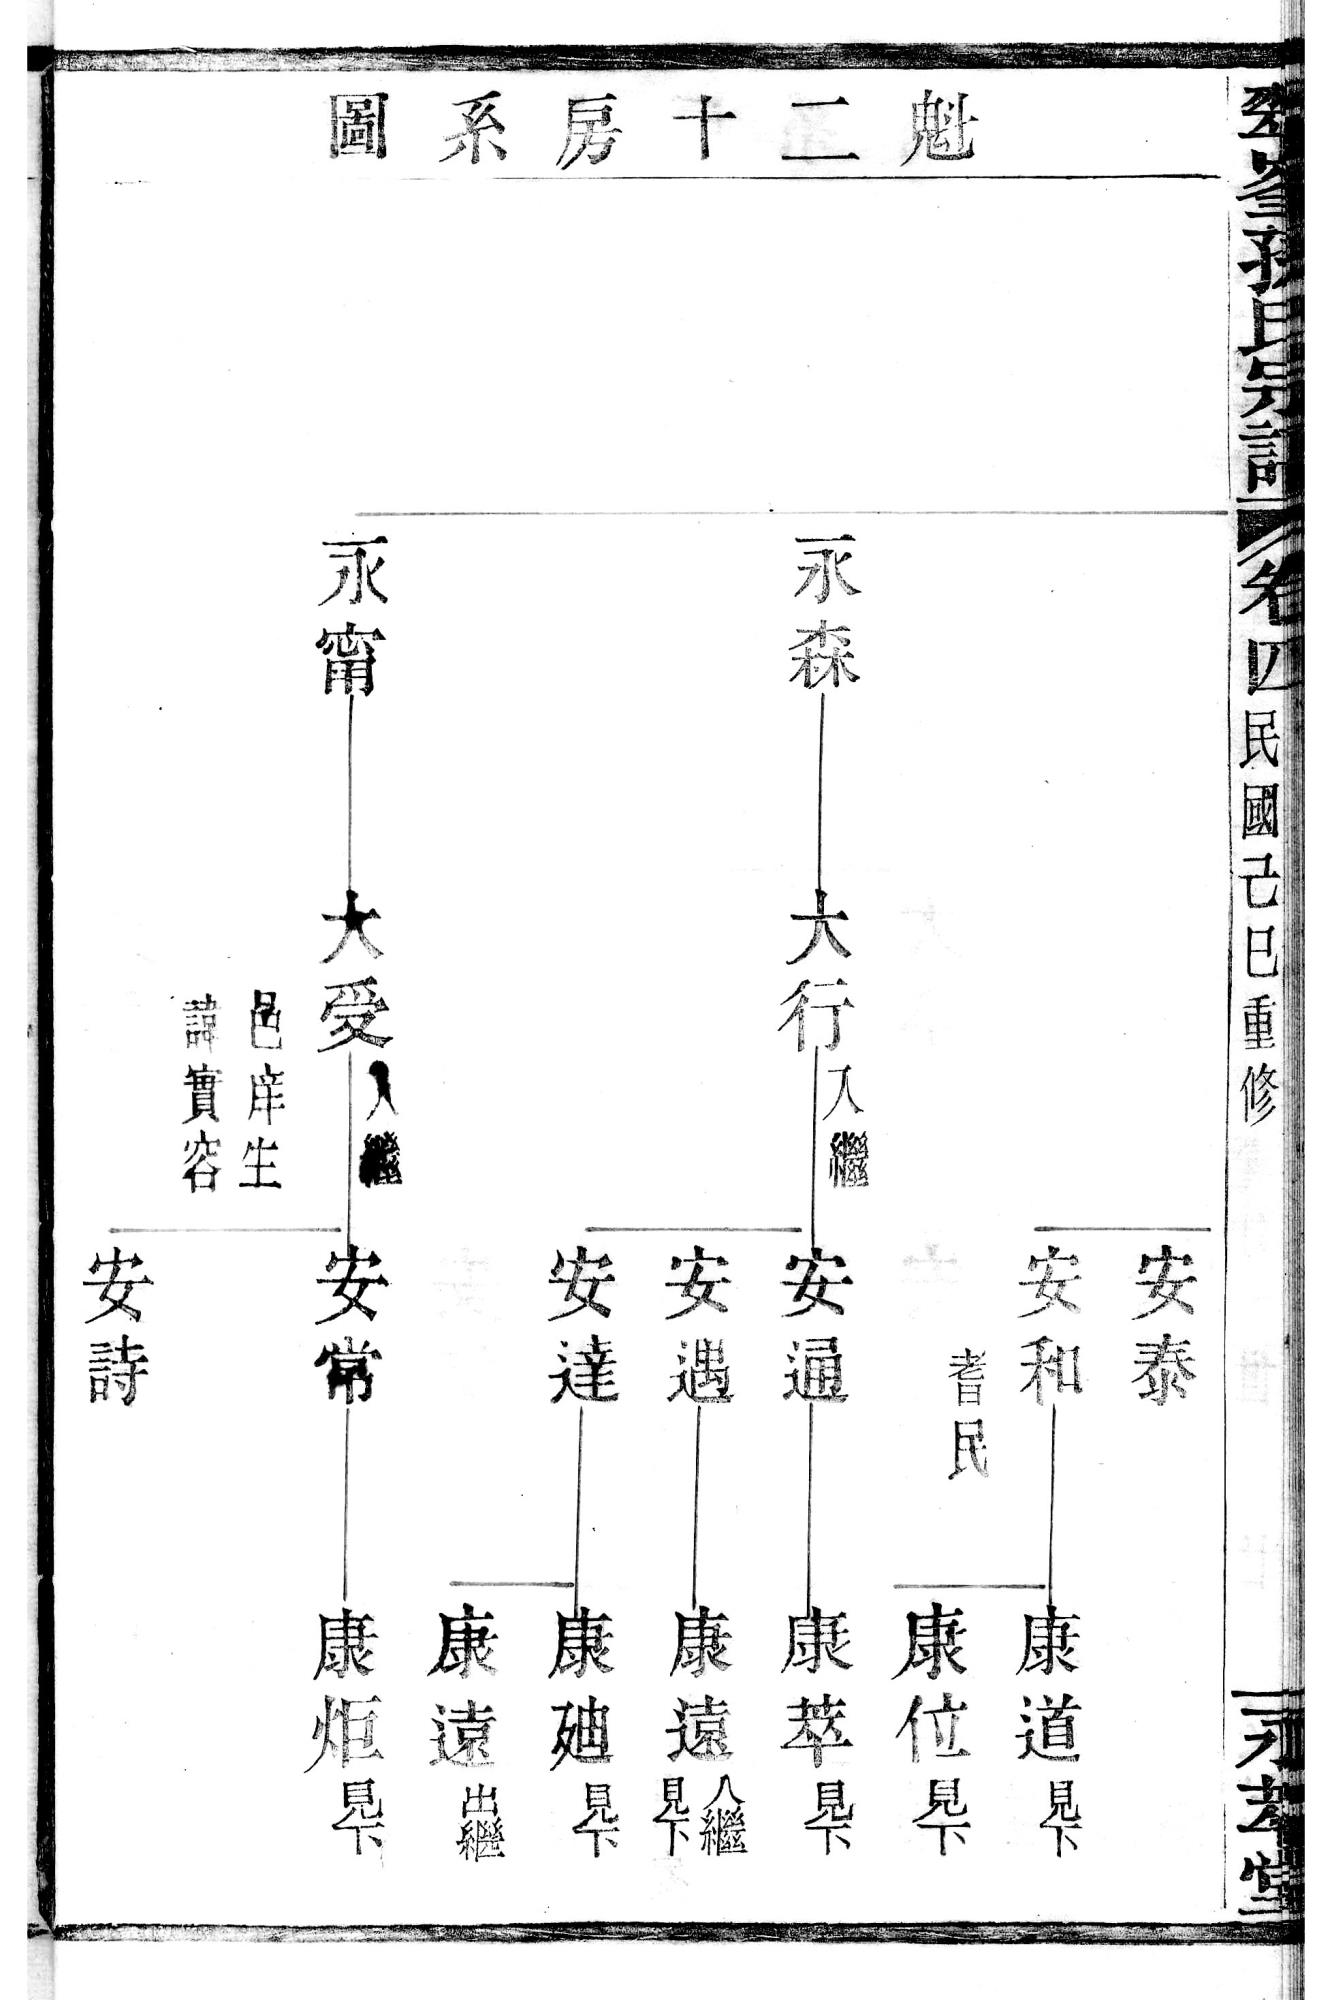 魁二十房系圖
孫氏宗譜 卷四 民國己巳重修 永孝堂
永森
永甯
大行 入繼
大受 入繼
邑庠生
諱實容
安泰
安和
耆民
安通
安遇
安達
安常
安詩
康道 見下
康位 見下
康萃 見下
康遠 入繼 見下
康廸 見下
康遠 出繼
康炬 見下